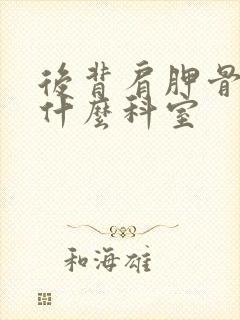 後背肩胛骨
什麼科室
和海雄